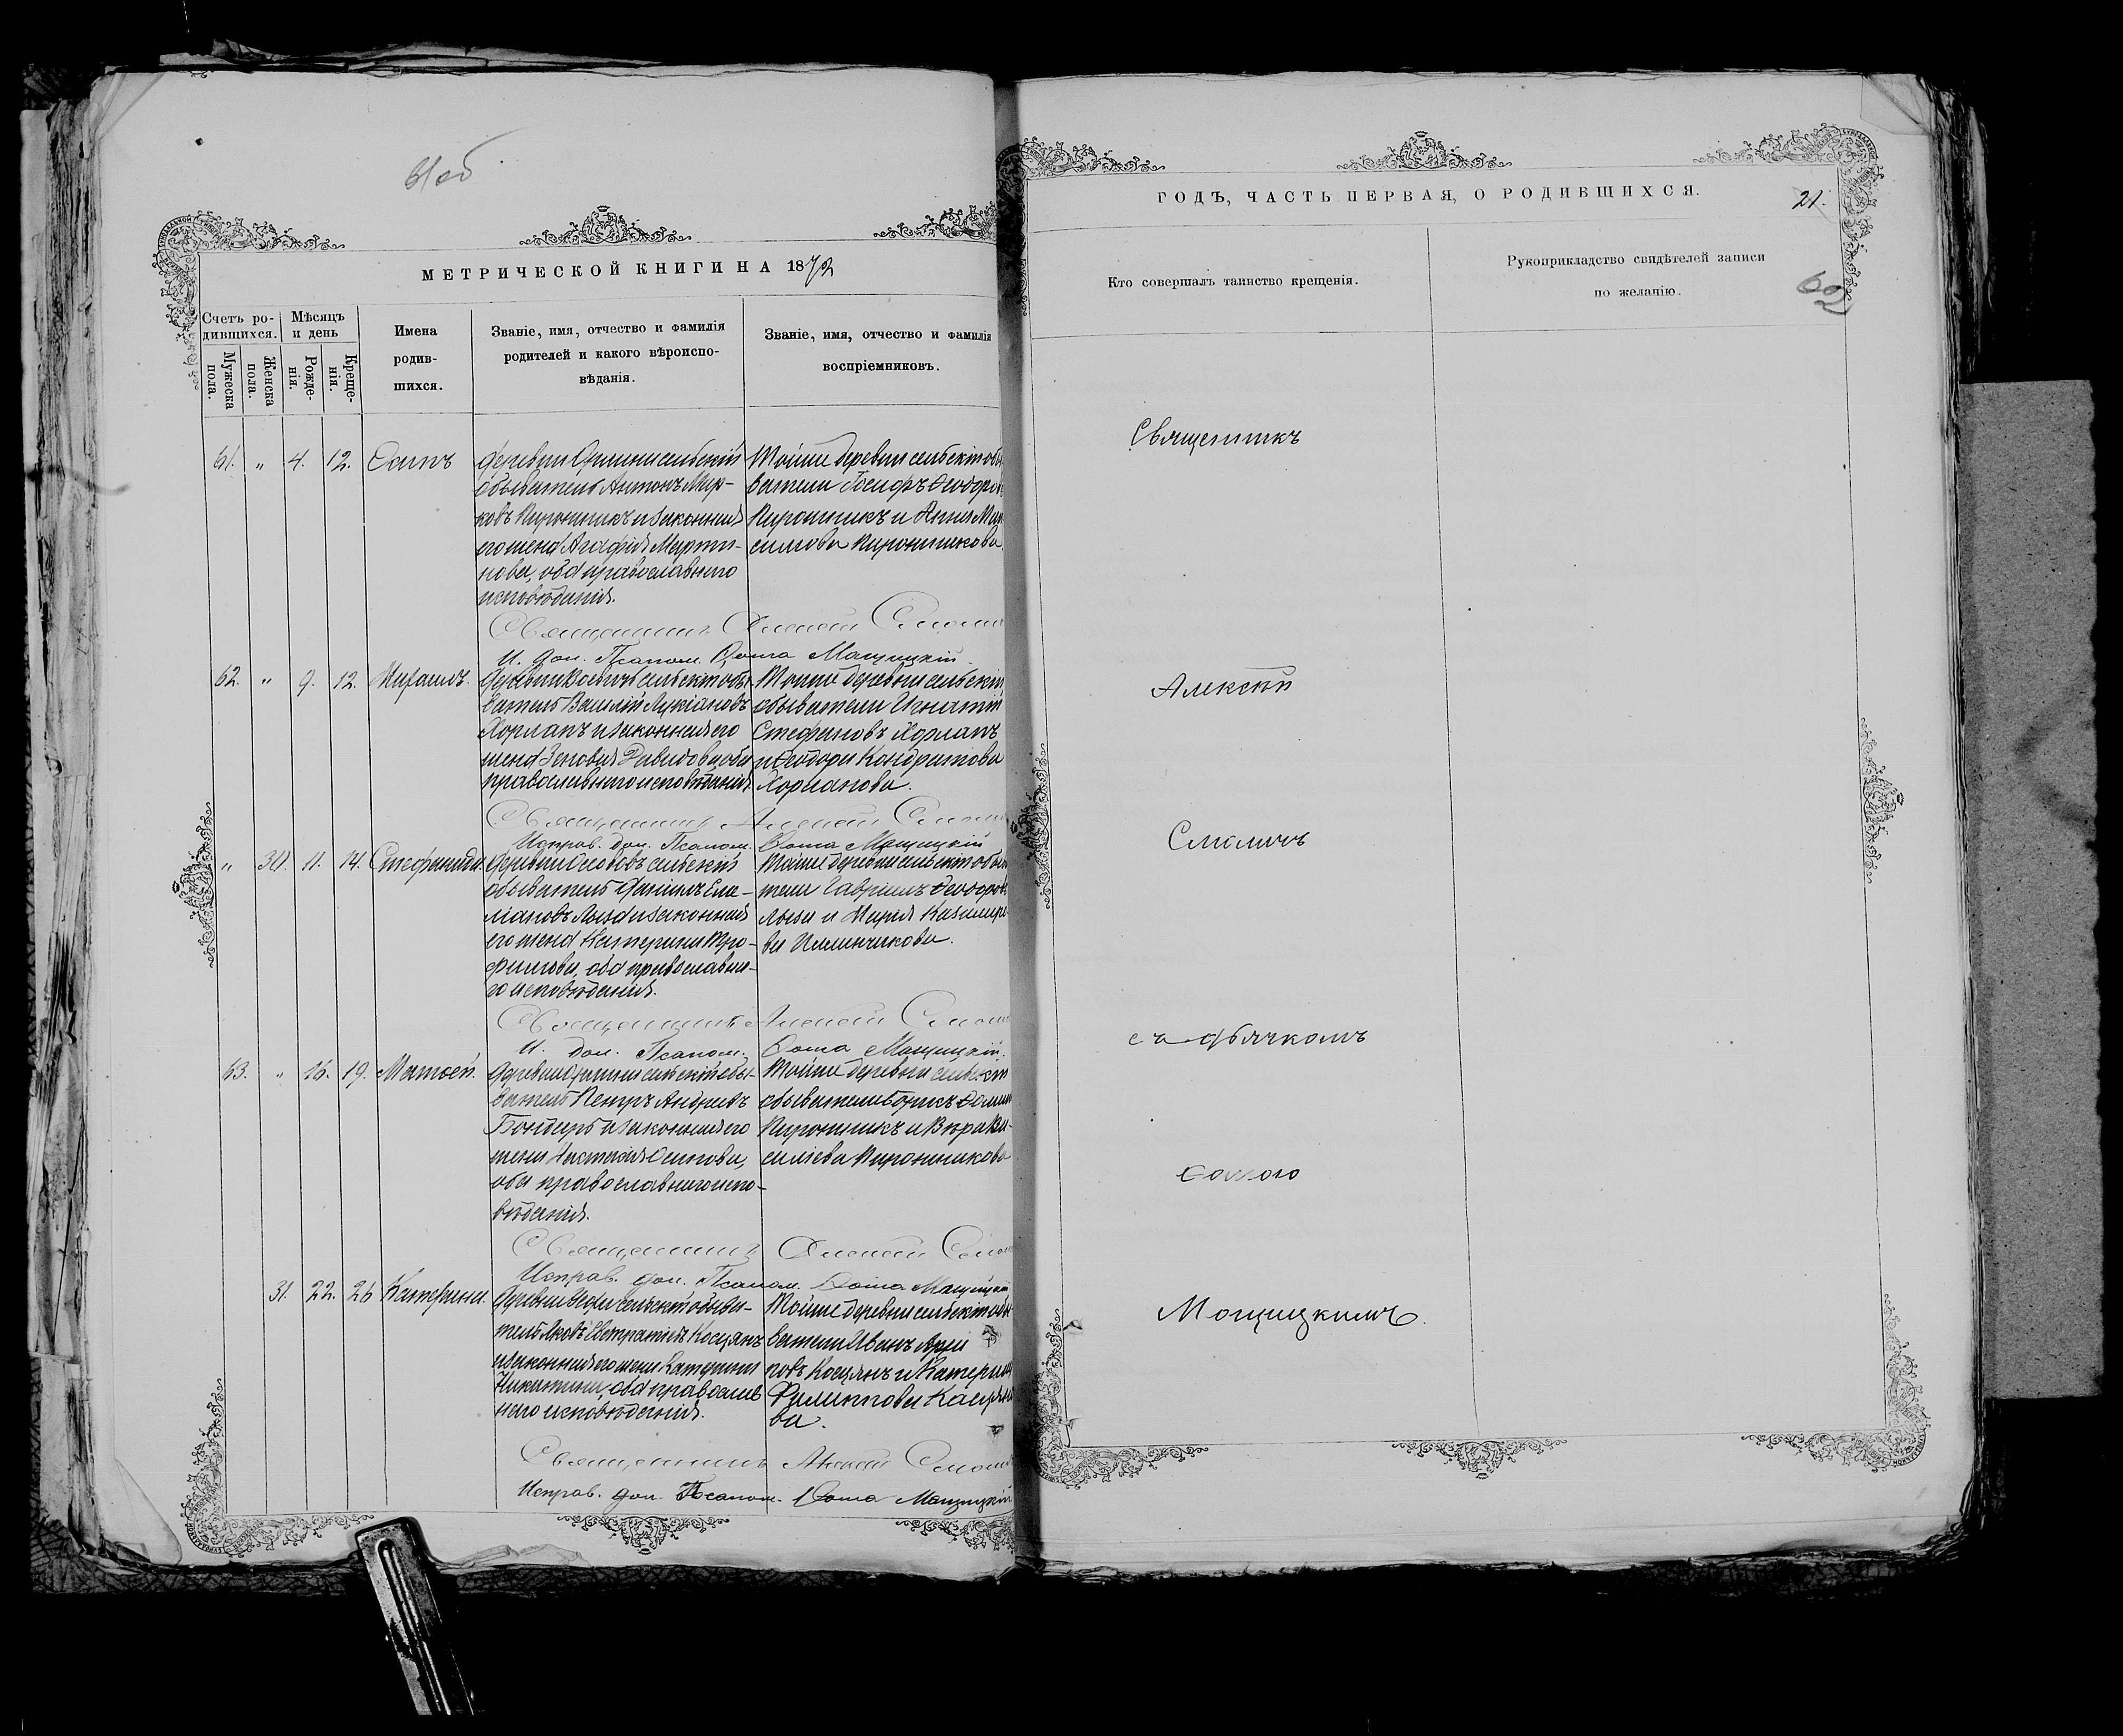 61об
МЕТРИЧЕСКОЙ КНИГИ НА 1872
Счетъ ро-
дившихся.
Мѣсяцъ
и день
Мужеска
пола.
Женска
пола.
Рожде-
нія.
Креще-
нія.
Имена
родив-
шихся.
Званіе, имя, отчество и фамилія
родителей и какого вѣроиспо-
вѣданія.
Званіе, имя, отчество и фамилія
воспріемниковъ.
61. " 4. 12. Осипъ
деревни сельскій
обыватель Антонъ Мар-
ковъ Пироникъ и законная
его жена Агафія Марти-
нова, оба православнаго
исповѣданія.
Тойже деревни сельскіе обы
ватели Іосифъ Ѳеодоров
Пироникъ и Анна Мак
симова Пироникова.
Священникъ Алексѣй
И. дол. Псалом. Ѳома Мощицкій
62. " 9. 12. Михаилъ.
деревни сельскій обы
ватель Василій Лукіановъ
Хорланъ и законная его
жена Зеновія Давидова, оба
православнаго исповѣданія
Тойже деревни сельскіе
обыватели Игнатій
Стефановъ Хорланъ
и Ѳеодора Кондратова
Хорланова.
Священникъ Алексѣй
Исправ. дол. Псалом. Ѳома Мощицкій
" 30. 11. 14. Стефанида.
деревни сельскій
обыватель Даніилъ Еме-
ліановъ Лыза и законная
его жена Катерина Тро-
фимова, оба православна-
го исповѣданія.
Тойже деревни сельскіе обыва
тели Гавріилъ Ѳеодоровъ
Лыза и Марія Казимиро-
ва
Священникъ Алексѣй
И. дол. Псалом. Ѳома Мощицкій.
63. " 16. 19. Матѳей.
деревни сельскій обы-
ватель Петръ Андреевъ
Бондарь и законная его
жена Настасія Осипова,
оба православнаго испо-
вѣданія.
Тойже деревни сельскіе
обыватели
Пироникъ и Вѣра Ва-
силіева Пироникова
Священникъ Алексѣй
Исправ. дол. Псалом. Ѳома Мощицкій
31. 22. 26 Катерина.
деревни сельскій обыва-
тель Яковъ Евстратіевъ Косцянъ
и законная его жена Катерина
Никитина, оба православ
наго исповѣданія.
Тойже деревни сельскіе обы
ватели Иванъ
повъ Косцянъ и Катерина
Филиппова
ва.
Священникъ Алексѣй
Исправ. дол. Псалом. Ѳома Мощицкій
ГОДЪ, ЧАСТЬ ПЕРВАЯ, О РОДИВШИХСЯ.
21.
62
Кто совершалъ таинство крещенія.
Рукоприкладство свидѣтелей записи
по желанію.
Священникъ
Алексѣй
Смоличъ
съ дьячкомъ
Ѳомою
Мощицкимъ.